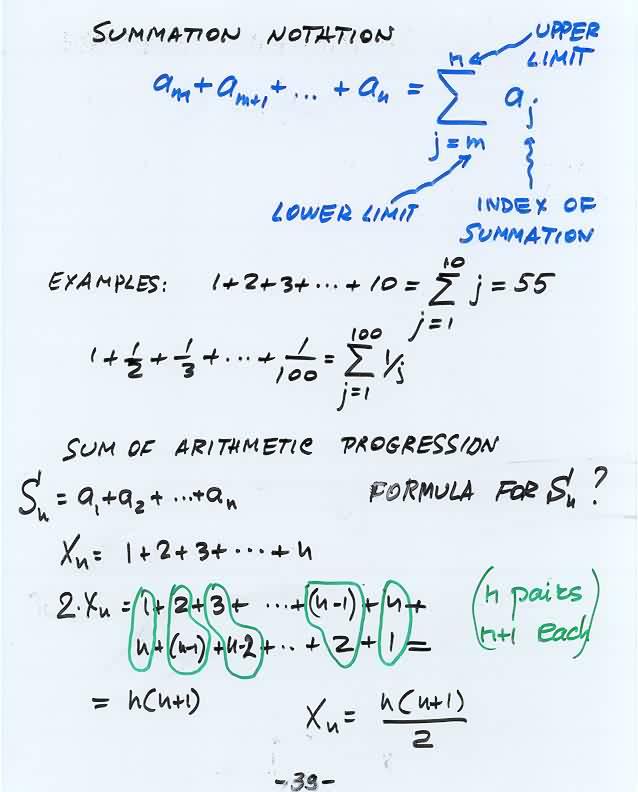 SUMMATION NOTATION
UPPER LIMIT
aₘ + aₘ₊₁ + ... + aₙ = ∑ⱼ₌ₘⁿ aⱼ
LOWER LIMIT
INDEX OF SUMMATION
EXAMPLES: 1+2+3+ ... + 10 = ∑ⱼ₌₁¹⁰ j = 55
1 + 1/2 + 1/3 + ... + 1/100 = ∑ⱼ₌₁¹⁰⁰ 1/j
SUM OF ARITHMETIC PROGRESSION
Sₙ = a₁ + a₂ + ... + aₙ FORMULA FOR Sₙ ?
Xₙ = 1+2+3+ ... + n
2·Xₙ = 1+2+3+ ... + (n-1) + n +
n + (n-1) + n-2 + ... + 2 + 1 =
(n pairs
n+1 each)
= n(n+1) Xₙ = n(n+1)/2
-39-